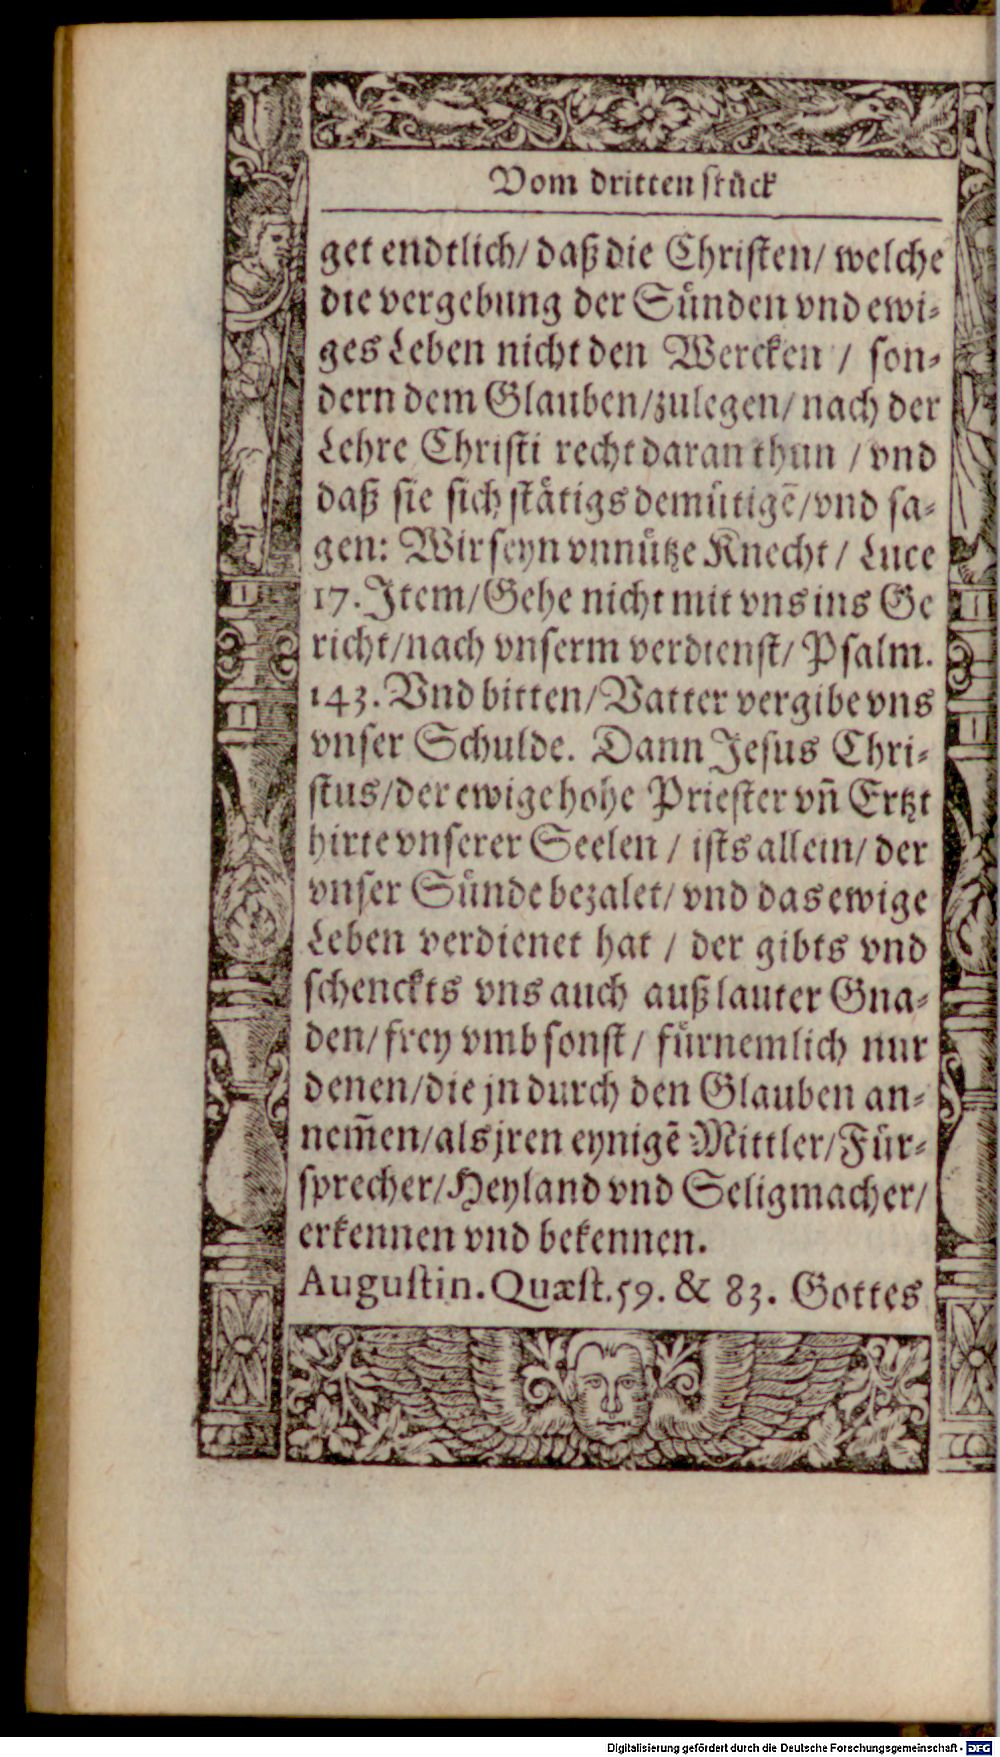 Vom dritten stück
get endtlich/ daß die Christen/ welche
die vergebung der Sünden vnd ewi-
ges Leben nicht den Wercken / son-
dern dem Glauben/zulegen/ nach der
Lehre Christi recht daran thun / vnd
daß sie sich stätigs demütigẽ/vnd sa-
gen: Wir seyn vnnütze Knecht / Luce
17. Item/Gehe nicht mit vns ins Ge
richt/nach vnserm verdienst/ Psalm.
143. Vnd bitten/Vatter vergibe vns
vnser Schulde. Dann Jesus Chri-
stus/der ewige hohe Priester vñ Ertzt
hirte vnserer Seelen / ists allein/ der
vnser Sünde bezalet/ vnd das ewige
Leben verdienet hat / der gibts vnd
schenckts vns auch auß lauter Gna-
den/ frey vmb sonst / fürnemlich nur
denen/die jn durch den Glauben an-
nem̃en/als jren eynigẽ Mittler/Für-
sprecher/Heyland vnd Seligmacher/
erkennen vnd bekennen.
Augustin. Quæst. 59. & 83. Gottes
Digitalisierung gefördert durch die Deutsche Forschungsgemeinschaft - DFG